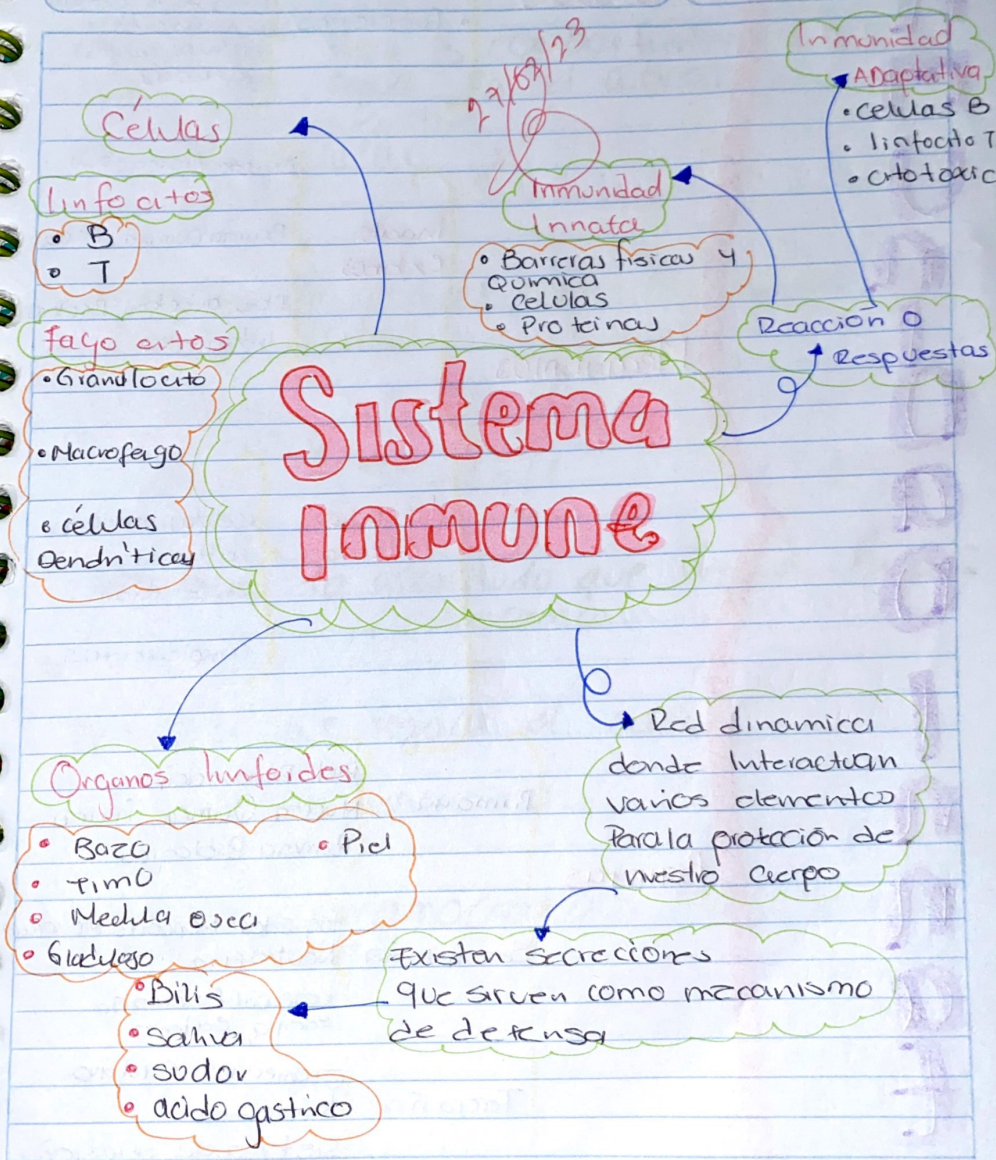 Células
Linfocitos
• B
• T
Fagocitos
• Granulocito
• Macrofago
• células
Dendríticas
27/03/23
Inmunidad
Innata
• Barreras fisicas y
Quimica
• Celulas
• Proteinas
Inmunidad
Adaptativa
• Celulas B
• linfocito T
• citotoxic
Reacción o
Respuestas
Sistema
Inmune
Organos linfoides
• Bazo
• Piel
• Timo
• Medula osea
Red dinamica
donde Interactuan
varios elementos
Para la protección de
nuestro Cuerpo
Existen secreciones
que sirven como mecanismo
de defensa
• Bilis
• saliva
• sudor
• acido gastrico